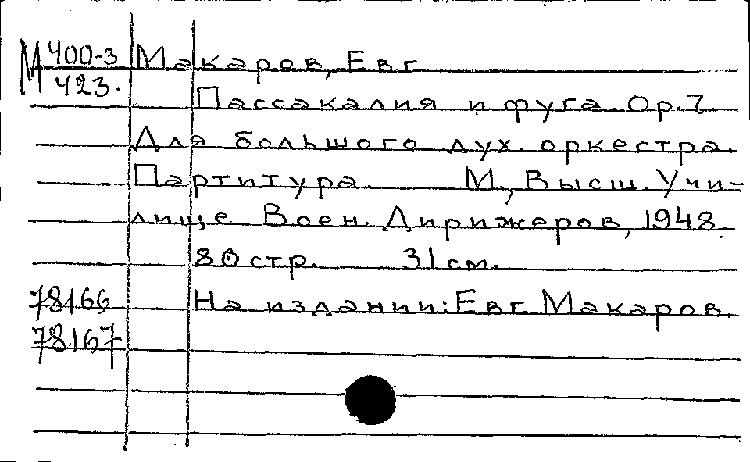 М 400-3 Макаров, Евг.
423.
Пассакалия и фуга. Ор. 7
Для большого дух. оркестра.
Партитура. М., Высш. Учи-
лище Воен. Дирижеров, 1948.
80 стр. 31 см.
78166 На издании: Евг. Макаров.
78167